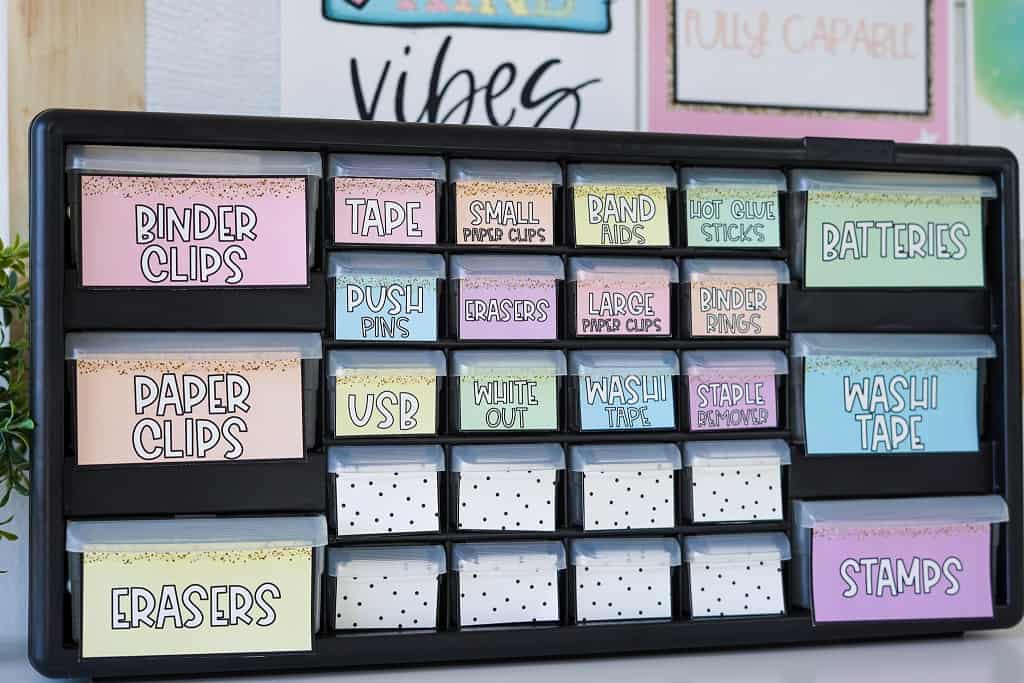 vibes
FULLY CAPABLE
BINDER
CLIPS
TAPE
SMALL
PAPER CLIPS
BAND
AIDS
HOT GLUE
STICKS
BATTERIES
PUSH
PINS
ERASERS
LARGE
PAPER CLIPS
BINDER
RINGS
PAPER
CLIPS
USB
WHITE
OUT
WASHI
TAPE
STAPLE
REMOVER
WASHI
TAPE
ERASERS
STAMPS